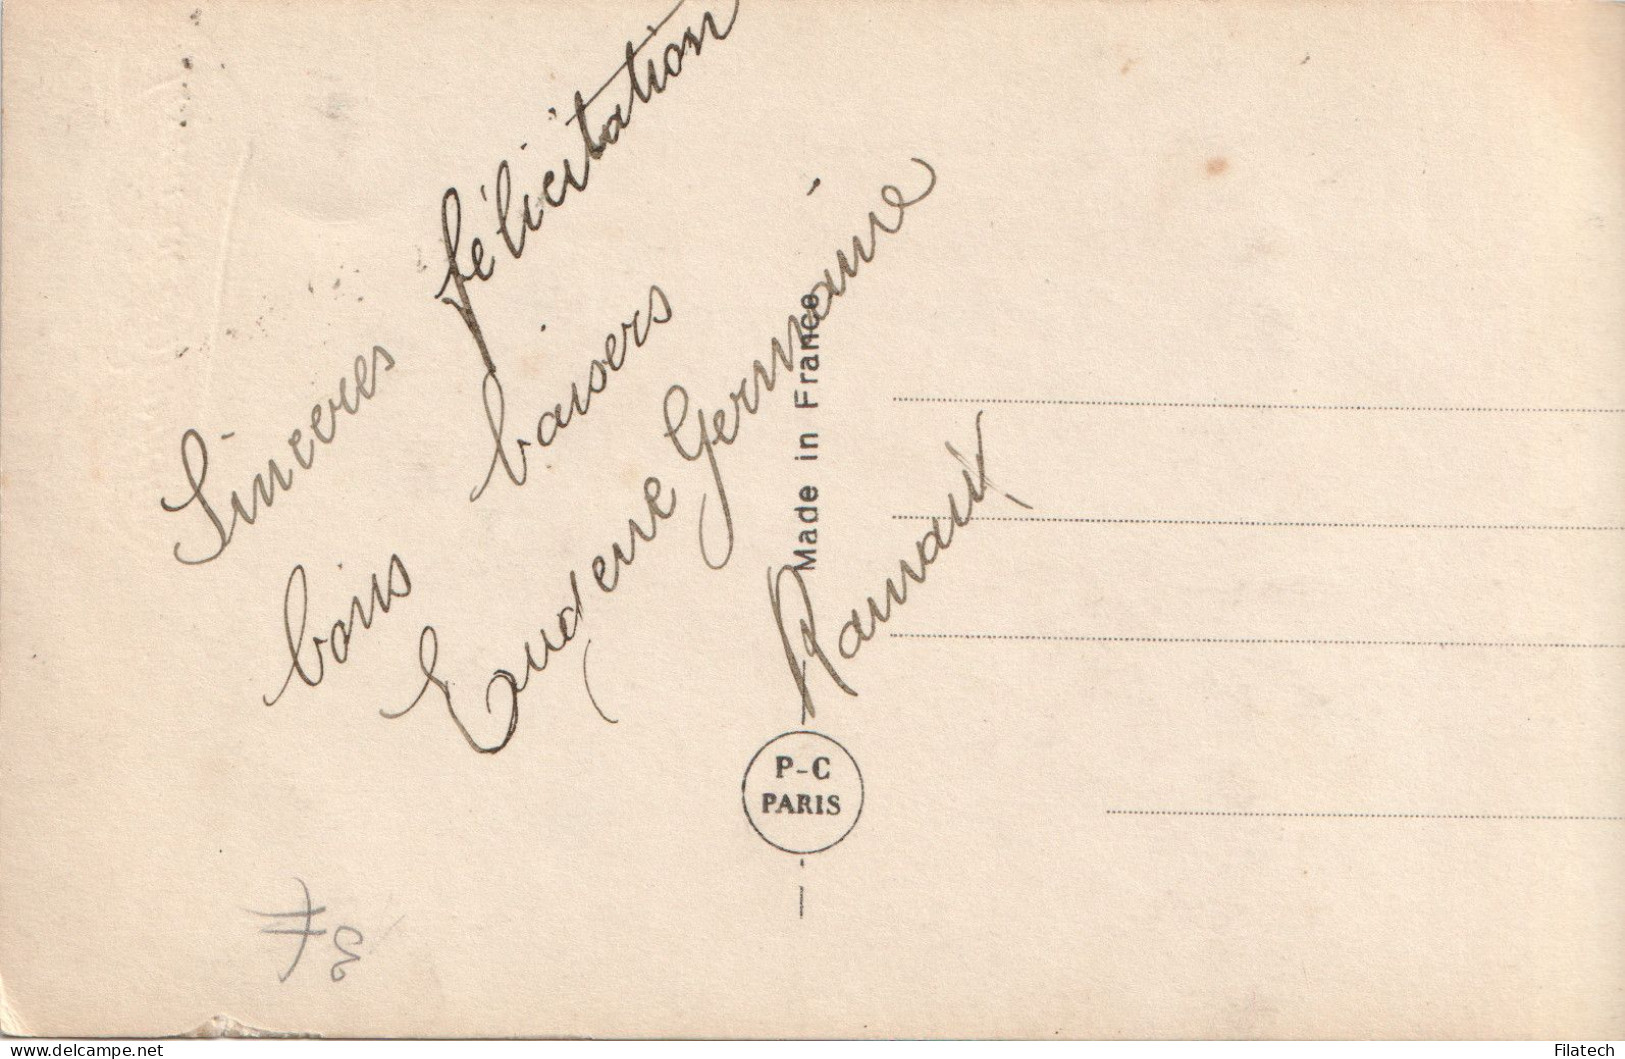 Sinceres félicitation
bons baisers
Eugene Germaine
Ramaux
Made in France
P-C
PARIS
www.delcampe.net
Filatech